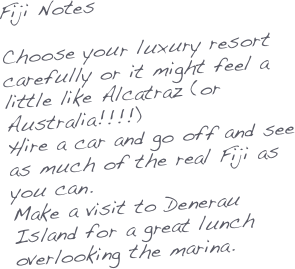 Fiji Notes
Choose your luxury resort
carefully or it might feel a
little like Alcatraz (or
Australia!!!!)
Hire a car and go off and see
as much of the real Fiji as
you can.
Make a visit to Denerau
Island for a great lunch
overlooking the marina.